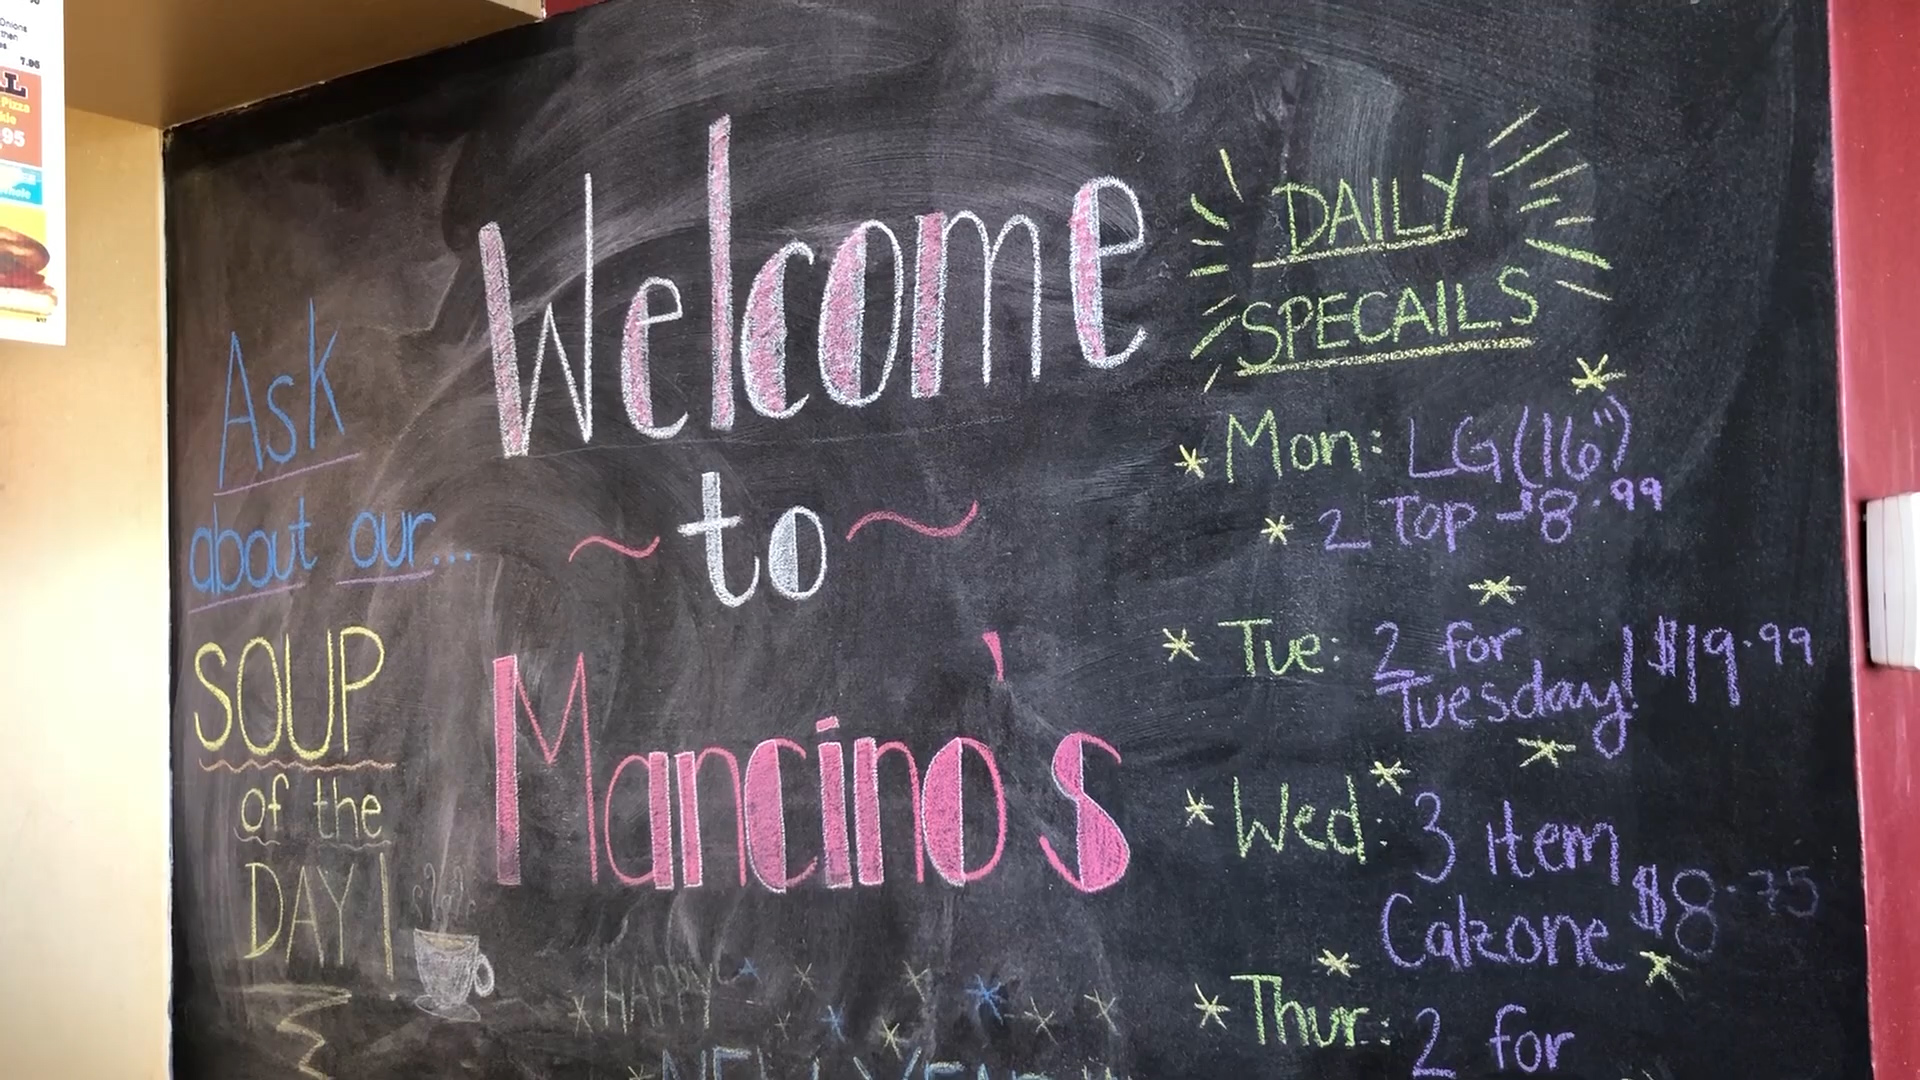 Onions
then
7.95
Pizza
.95
Ask
about our...
SOUP
of the
DAY!
Welcome
to
Mancino's
HAPPY
NEW YEAR
DAILY
SPECAILS
Mon: LG (16")
2 Top $8.99
Tue: 2 for
Tuesday! $19.99
Wed: 3 item
Calzone $8.75
Thur: 2 for